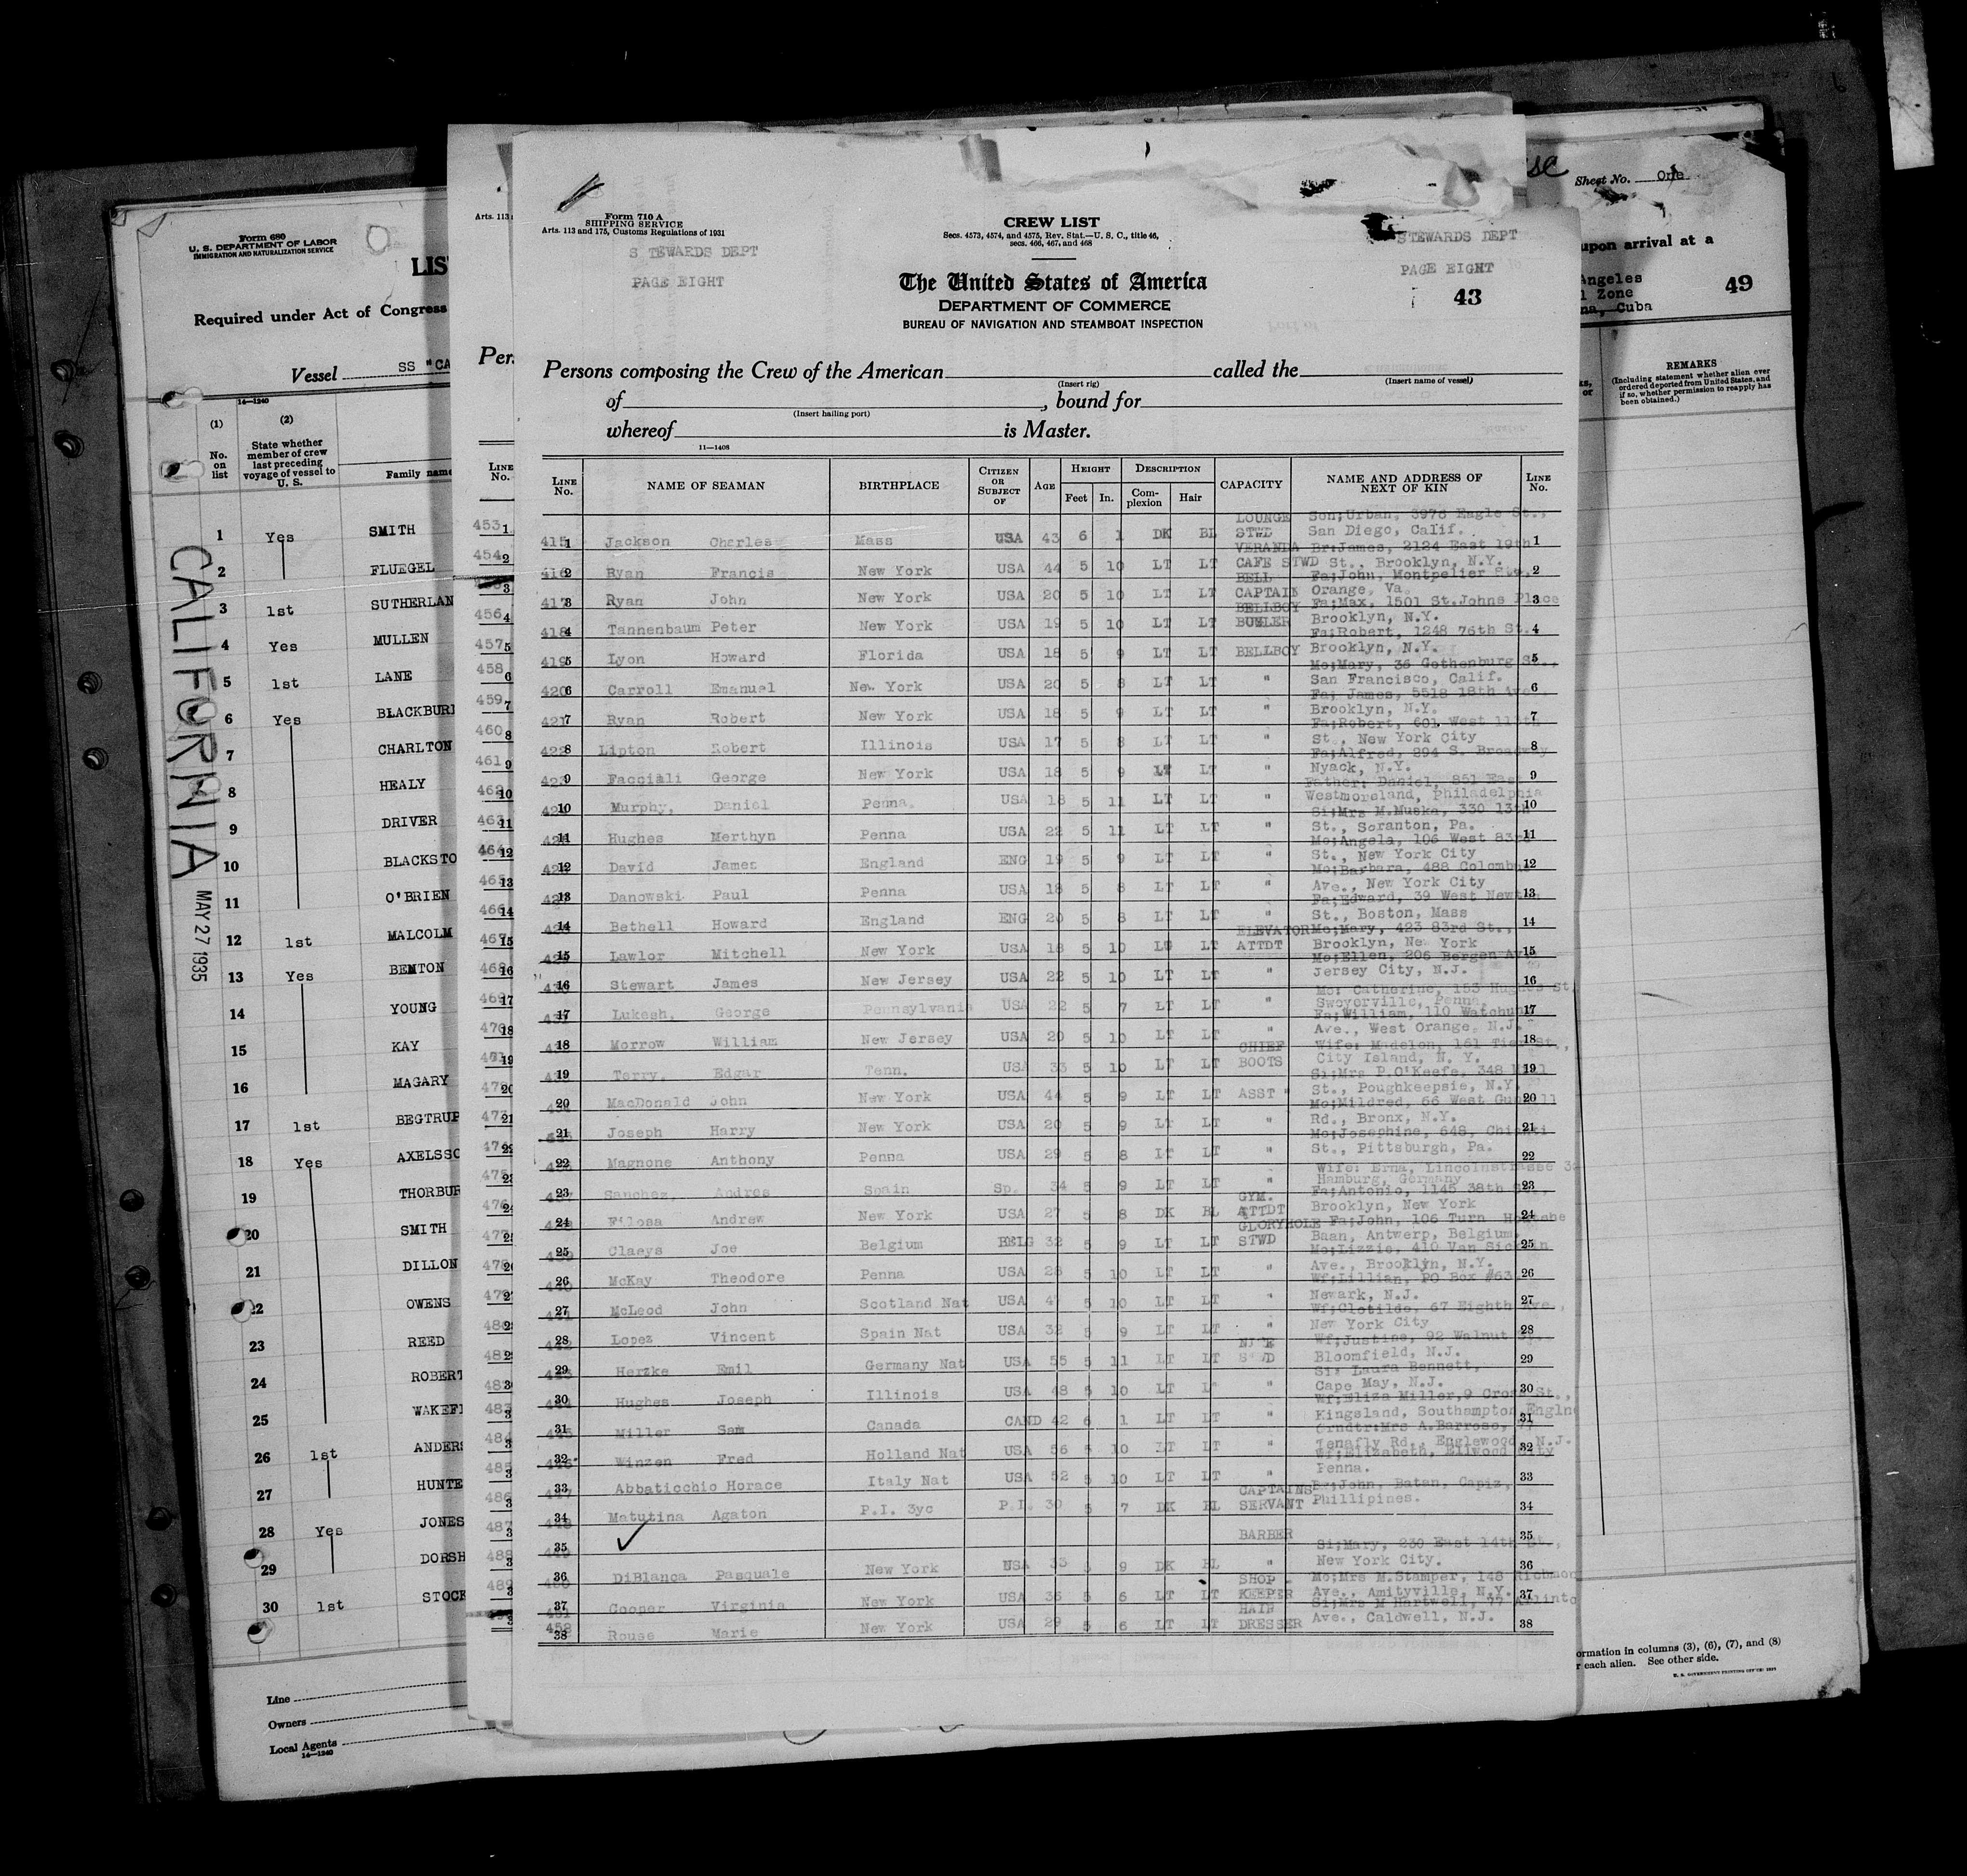 Form 680
U. S. DEPARTMENT OF LABOR
IMMIGRATION AND NATURALIZATION SERVICE
LIS
Required under Act of Congress
Vessel SS "CA
14—1240
(1) (2)
No. on list
State whether member of crew last preceding voyage of vessel to U. S.
Family name
1 Yes SMITH
2 FLUEGEL
3 1st SUTHERLAN
4 Yes MULLEN
5 1st LANE
6 Yes BLACKBUR
7 CHARLTON
8 HEALY
9 DRIVER
10 BLACKSTO
11 O'BRIEN
12 1st MALCOLM
13 Yes BENTON
14 YOUNG
15 KAY
16 MAGARY
17 1st BEGTRUP
18 Yes AXELSSO
19 THORBUR
20 SMITH
21 DILLON
22 OWENS
23 REED
24 ROBERT
25 WAKEFI
26 1st ANDERS
27 HUNTE
28 Yes JONES
29 DORSH
30 1st STOCK
Line
Owners
Local Agents
14—1240
CALIFORNIA
MAY 27 1935
Arts. 113
Pers
LINE No.
Form 710 A
SHIPPING SERVICE
Arts. 113 and 175, Customs Regulations of 1931
S TEWARDS DEPT
PAGE EIGHT
CREW LIST
Secs. 4573, 4574, and 4575, Rev. Stat.—U. S. C., title 46,
secs. 466, 467, and 468
The United States of America
DEPARTMENT OF COMMERCE
BUREAU OF NAVIGATION AND STEAMBOAT INSPECTION
STEWARDS DEPT
PAGE EIGHT
43
Persons composing the Crew of the American called the
(Insert rig) (Insert name of vessel)
of , bound for
(Insert hailing port)
whereof is Master.
11—1408
LINE No. NAME OF SEAMAN BIRTHPLACE CITIZEN OR SUBJECT OF AGE HEIGHT Feet In. DESCRIPTION Complexion Hair CAPACITY NAME AND ADDRESS OF NEXT OF KIN LINE No.
415 1 Jackson Charles Mass USA 43 6 1 DK BL LOUNGE STWD Son;Urban, 3976 Eagle St., San Diego, Calif. 1
416 2 Ryan Francis New York USA 44 5 10 LT LT VERANDA CAFE STWD Br:James, 2124 East 19th St., Brooklyn, N.Y. 2
417 3 Ryan John New York USA 20 5 10 LT LT BELL CAPTAIN Fa;John, Montpelier Sta. Orange, Va. 3
418 4 Tannenbaum Peter New York USA 19 5 10 LT LT BELLBOY BUGLER Fa;Max, 1501 St.Johns Place Brooklyn, N.Y. 4
419 5 Lyon Howard Florida USA 18 5 9 LT LT BELLBOY Fa;Robert, 1248 76th St. Brooklyn, N.Y. 5
420 6 Carroll Emanuel New York USA 20 5 8 LT LT " Mo;Mary, 36 Gothenburg St., San Francisco, Calif. 6
421 7 Ryan Robert New York USA 18 5 9 LT LT " Fa; James, 5518 18th Ave. Brooklyn, N.Y. 7
422 8 Lipton Robert Illinois USA 17 5 8 LT LT " Fa;Robert, 601 West 11 St., New York City 8
423 9 Facciali George New York USA 18 5 9 LT LT " Fa;Alfred, 294 S. Broadway Nyack, N.Y. 9
10 Murphy, Daniel Penna. USA 18 5 11 LT LT " Father: Daniel, 851 East Westmoreland, Philadelphia 10
11 Hughes Merthyn Penna USA 22 5 11 LT LT " Si;Mrs M.Muska, 330 13th St., Scranton, Pa. 11
12 David James England ENG 19 5 9 LT LT " Mo;Angela, 106 West 83rd St., New York City 12
13 Danowski Paul Penna USA 18 5 8 LT LT " Mo;Barbara, 488 Columbus Ave., New York City 13
14 Bethell Howard England ENG 20 5 8 LT LT " Fa;Edward, 39 West Newton St., Boston, Mass 14
15 Lawlor Mitchell New York USA 18 5 10 LT LT ELEVATOR ATTDT Mo;Mary, 423 83rd St., Brooklyn, New York 15
16 Stewart James New Jersey USA 22 5 10 LT LT " Mo;Ellen, 206 Bergen Av Jersey City, N.J. 16
17 Lukesh, George Pennsylvania USA 22 5 7 LT LT " Mo: Catherine, 183 Hughes St. Swoyerville, Penna. 17
18 Morrow William New Jersey USA 20 5 10 LT LT " Fa;William, 110 Watchung Ave., West Orange, N.J. 18
19 Terry, Edgar Tenn. USA 33 5 10 LT LT CHIEF BOOTS Wife: Madelon, 161 Tier St., City Island, N. Y. 19
20 MacDonald John New York USA 44 5 9 LT LT ASST " Si;Mrs P.O'Keefe, 348 St., Poughkeepsie, N.Y. 20
21 Joseph Harry New York USA 20 5 9 LT LT " Mo;Mildred, 66 West Gunhill Rd., Bronx, N.Y. 21
22 Magnone Anthony Penna USA 29 5 8 LT LT " Mo;Josephine, 648, St., Pittsburgh, Pa. 22
23 Sanchez, Andres Spain Sp. 34 5 9 LT LT " Wife: Erna, Lincolnstrasse Hamburg, Germany 23
24 Filosa Andrew New York USA 27 5 8 DK BL GYM. ATTDT Fa;Antonio, 1145 38th St., Brooklyn, New York 24
25 Claeys Joe Belgium BELG 32 5 9 LT LT GLORYHOLE STWD Fa;John, 106 Turn Baan, Antwerp, Belgium. 25
26 McKay Theodore Penna USA 28 5 10 LT LT " Mo;Lizzie, 410 Van Sicklen Ave., Brooklyn, N.Y. 26
27 McLeod John Scotland Nat USA 47 5 10 LT LT " Wf;Lillian, PO Box #63 Newark, N.J. 27
28 Lopez Vincent Spain Nat USA 32 5 9 LT LT " Wf;Clotilde, 67 Eighth Ave., New York City 28
29 Herzke Emil Germany Nat USA 55 5 11 LT LT Wf;Justine, 92 Walnut Bloomfield, N.J. 29
30 Hughes Joseph Illinois USA 48 5 10 LT " Si: Laura Bennett, Cape May, N.J. 30
31 Miller Sam Canada CAND 42 6 1 LT LT " Wf;Eliza Miller,9 Cross St., Kingsland, Southampton, Englnd 31
32 Winzen Fred Holland Nat USA 56 5 10 LT LT " Grndtr:Mrs A.Barroso, 77 Tenafly Rd., Englewood, N.J. 32
33 Abbaticchio Horace Italy Nat USA 52 5 10 LT LT " Wf;Elizabeth, Ellwood City Penna. 33
34 Matutina Agaton P.I. 3yc P.I. 30 5 7 DK BL CAPTAINS SERVANT Br;John, Batan, Capiz, Phillipines. 34
35 BARBER 35
36 DiBlanca Pasquale New York USA 33 5 9 DK BL " Si;Mary, 230 East 14th St., New York City. 36
37 Cooper Virginia New York USA 36 5 6 LT LT SHOP KEEPER Mo;Mrs M.Stamper, 148 Richmon Ave., Amityville, N.Y. 37
38 Rouse Marie New York USA 29 5 6 LT LT HAIR DRESSER Si;Mrs M Hartwell, 77 Arlinto Ave., Caldwell, N.J. 38
Sheet No. One
upon arrival at a
Angeles
l Zone
na, Cuba
49
REMARKS
(Including statement whether alien ever ordered deported from United States, and if so, whether permission to reapply has been obtained.)
ormation in columns (3), (6), (7), and (8)
r each alien. See other side.
U. S. GOVERNMENT PRINTING OFFICE